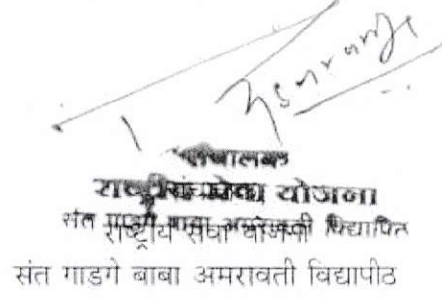 संचालक
राष्ट्रीय सेवा योजना
संत गाडगे बाबा अमरावती विद्यापित
राष्ट्रीय सेवा योजना
संत गाडगे बाबा अमरावती विद्यापीठ